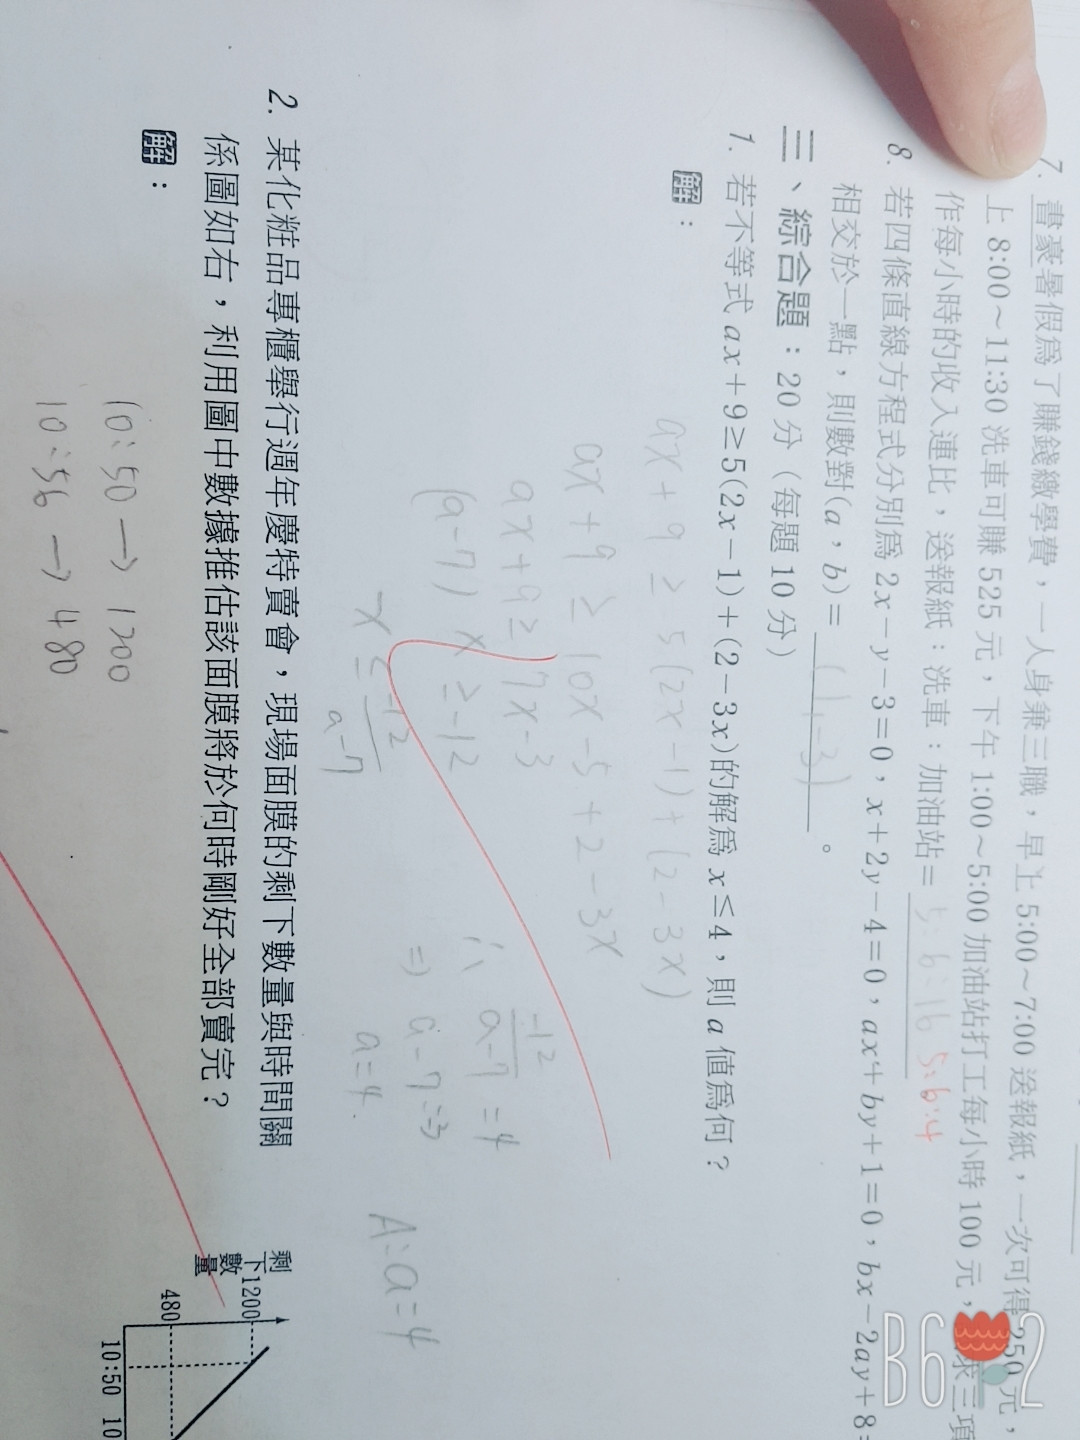 7. 書豪暑假為了賺錢繳學費，一人身兼三職，早上5:00~7:00送報紙，一次可得250元，
上8:00~11:30洗車可賺525元，下午1:00~5:00加油站打工每小時100元，求三項
作每小時的收入連比，送報紙：洗車：加油站＝ 5:6:16 5:6:4
8. 若四條直線方程式分別為2x-y-3=0，x+2y-4=0，ax+by+1=0，bx-2ay+8=
相交於一點，則數對(a，b)= 。
三、綜合題：20分（每題10分）
1. 若不等式ax+9≥5(2x-1)+(2-3x)的解為x≤4，則a值為何？
解：
ax+9 ≥ 5(2x-1)+(2-3x)
ax+9 ≥ 10x-5+2-3x
ax+9≥7x-3
(a-7)x ≥-12
x ≤ -12/a-7
∴ -12/a-7 = 4
⇒ a-7=-3
a=4.
A:a=4
2. 某化粧品專櫃舉行週年慶特賣會，現場面膜的剩下數量與時間關
係圖如右，利用圖中數據推估該面膜將於何時剛好全部賣完？
解：
10:50 → 1200
10:56 → 480
剩下數量
1200
480
10:50 10
B612